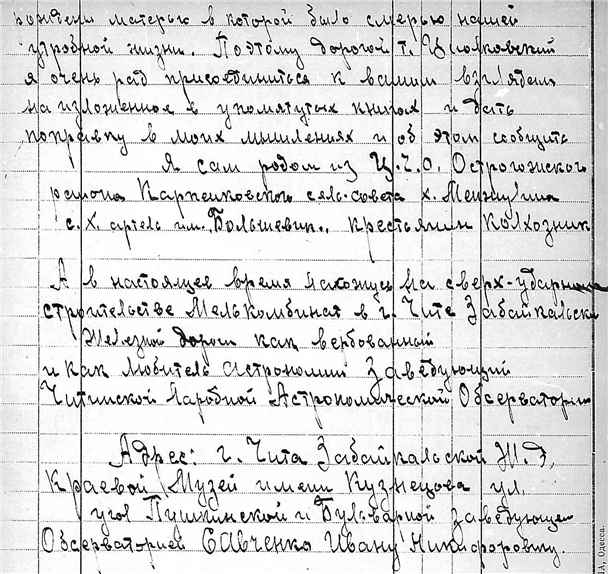 рождени матерью в которой было смерью нашей
утробной жизни. Поэтому дорогой т. Циолковский
я очень рад присоединиться к вашим взглядам
на изложенное в упомятутых книгах и дать
поправку в моих мышлениях и об этом сообщить
Я сам родом из Ц.Ч.О. Острогожского
района Карпенковского сель-совета х.
с.х. артель им. Большевик., крестьянин колхозник
А в настоящее время нахожусь на сверх-ударном
строительстве Мелькомбинат в г. Чите Забайкальской
Железной дороги как вербованный
и как любитель астрономии Заведующий
Читинской Народной Астрономической Обсерваторией
Адрес: г. Чита Забайкальской Ж.Д.
Краевой Музей имени Кузнецова ул.
угол Пушкинской и Заведующему
Обсерваторией Савченко Ивану Никифоровичу.
НА, Одесса.